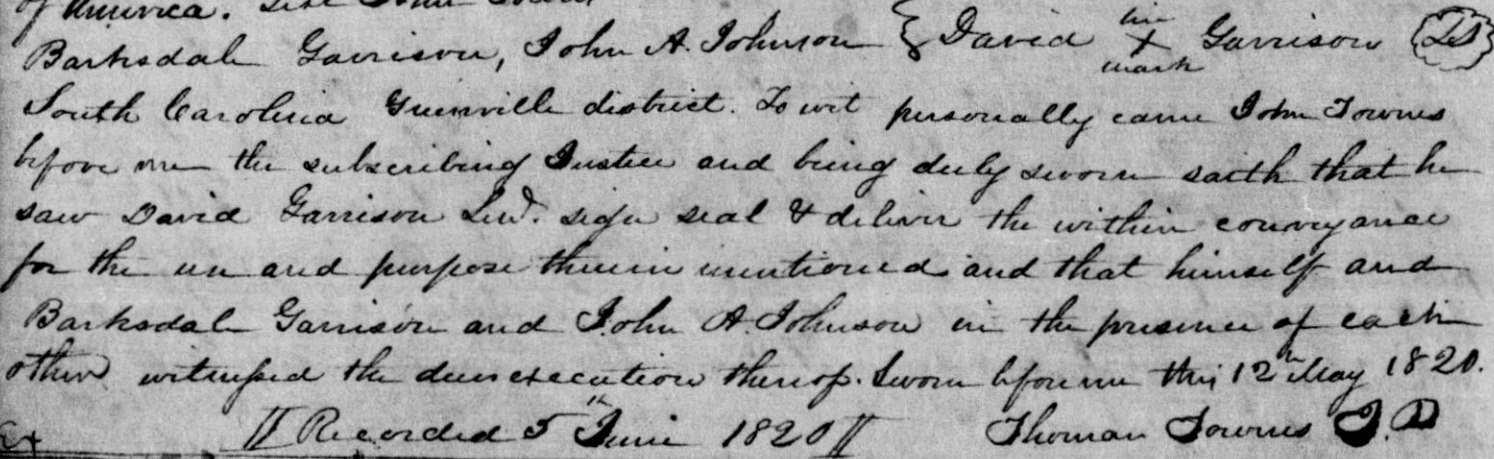 of America. Test John
Barksdale Garrison, John A. Johnson { David his X mark Garrison LS
South Carolina Greenville district. To wit personally came John Townes
before me the subscribing Justice and being duly sworn saith that he
saw David Garrison Senr. sign seal & deliver the within conveyance
for the use and purpose therein mentioned and that himself and
Barksdale Garrison and John A. Johnson in the presence of each
other witnessed the due execution thereof. Sworn before me this 12th May 1820.
Ex // Recorded 5th June 1820 // Thomas Townes J.Q